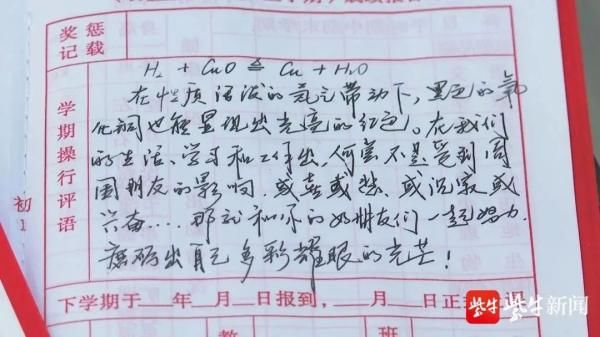 奖惩
记载
学期操行评语
初1
H₂ + CuO ≜ Cu + H₂O
在性质活泼的氢气带动下，黑色的氧
化铜也能呈现出光亮的红色。在我们
的生活、学习和工作出，何尝不是受到周
围朋友的影响，或喜或愁、或沉寂或
兴奋……那就和你的好朋友们一起努力，
磨砺出自己多彩耀眼的光芒！
下学期于 年 月 日报到， 月 日正
班
紫牛 紫牛新闻